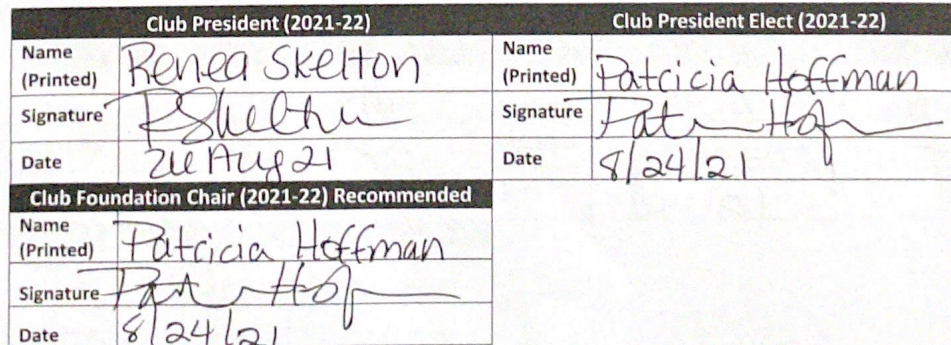 Club President (2021-22)
Name (Printed) Renea Skelton
Signature RSkelton
Date Aug 21
Club President Elect (2021-22)
Name (Printed) Patricia Hoffman
Signature
Date 8/24/21
Club Foundation Chair (2021-22) Recommended
Name (Printed) Patricia Hoffman
Signature
Date 8/24/21